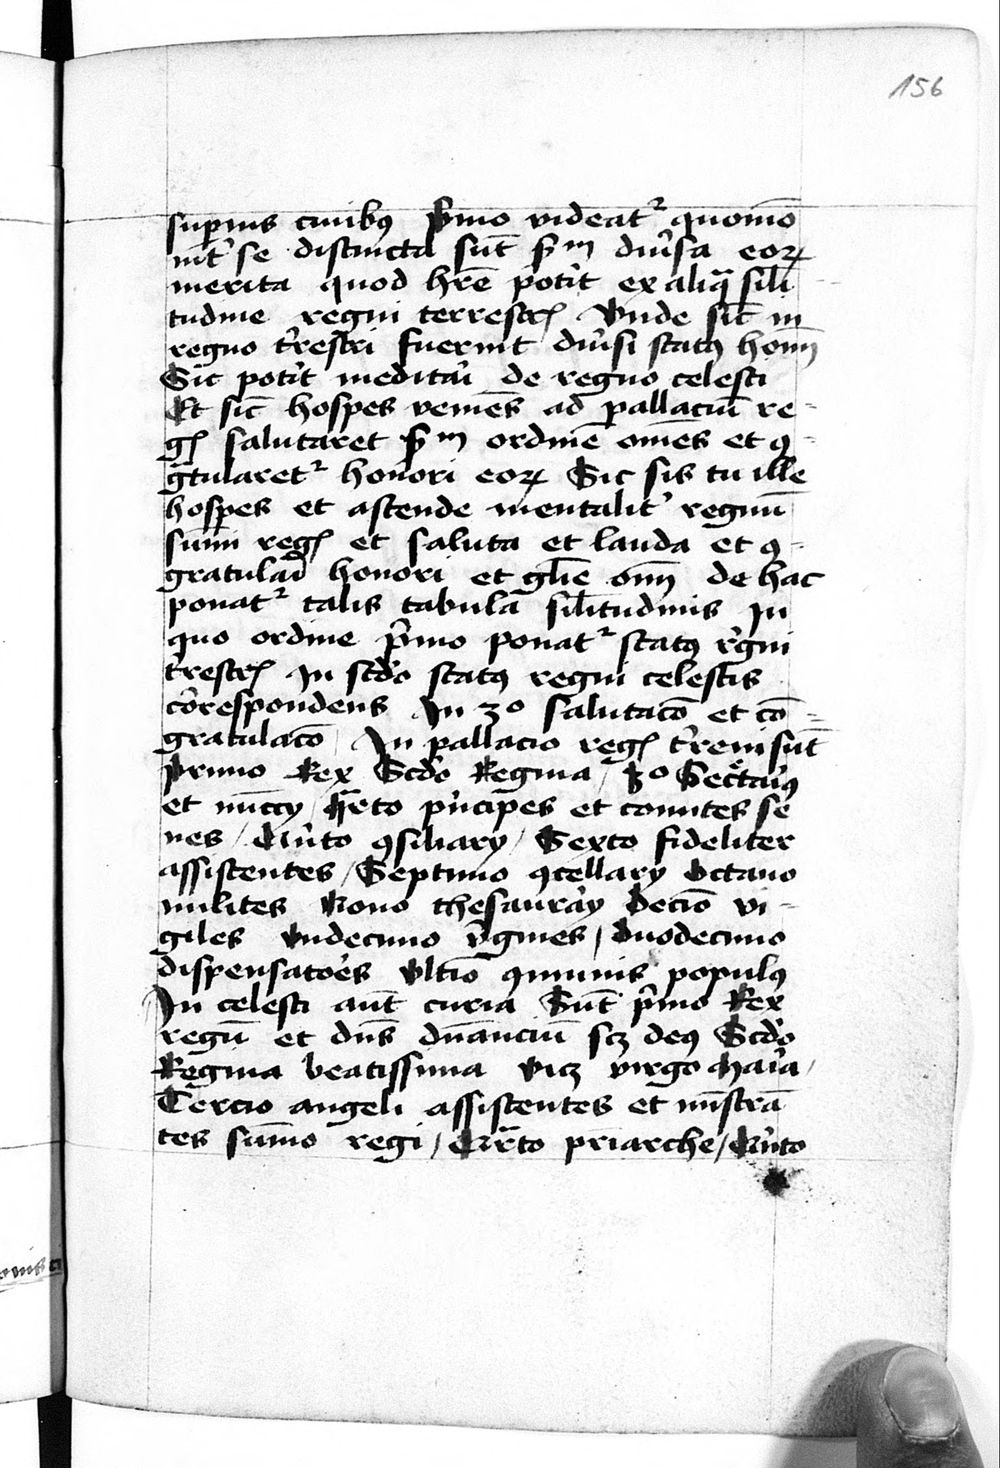 156
sup̱nis ciuibꝰ P̄mo videatᷣ quomō
int̾ se distincta sūt ẜm diu̾sa eoꝝ
merita quod hr̄e potit̾ ex aliq̄ sili
tudine regni terrestrꝭ Vnde sic̄ in
regno t̾restri fuerint diu̾si statꝰ hoīm
Sic potit̾ meditai̾ de regno celesti
Et sic̄ hospes venies ad pallaciū re-
gꝭ salutaret ẜm ordinē om̄es et ꝯ-
gͣtularetᷣ honori eoꝝ Sic sis tu ille
hospes et ascende mentalit̾ regnū
sūmi regꝭ et saluta et lauda et ꝯ-
gratulai̾ honori et gl̄ie om̄ de hac
ponatᷣ talis tabula silitudinis In
quo ordine p̾mo ponatᷣ statꝰ r̾gni
t̾restrꝭ In scd̾o statꝰ regni celestis
cōrespondens In 3o salutacō et cō-
gratulacō In pallacio regꝭ t̾reni sūt
Primo Rex Scd̾o Regina / 3o Secͤtai̾ꝰ
et nūccy / q̄rto p̾ncipes et comites se
nes / Qui̾to ꝯsiliary / Sexto fideliter
assistentes / Septimo ꝯcellary Octauo
milites Nono thesaura̾y Decīo vi-
giles Vndecimo v̾gines / Duodecimo
dispensato̾es Vltīo ꝯmunis populꝰ
In celesti aūt curia Sūt p̾mo Rex
regū et dn̄s dn̄anciū scꝫ deꝰ Scd̾o
Regina beatissima vicꝫ virgo Mai̾a /
Tercio angeli assistentes et mīstrā
tes sūmo regi / Qͣrto priarche / Qui̾to